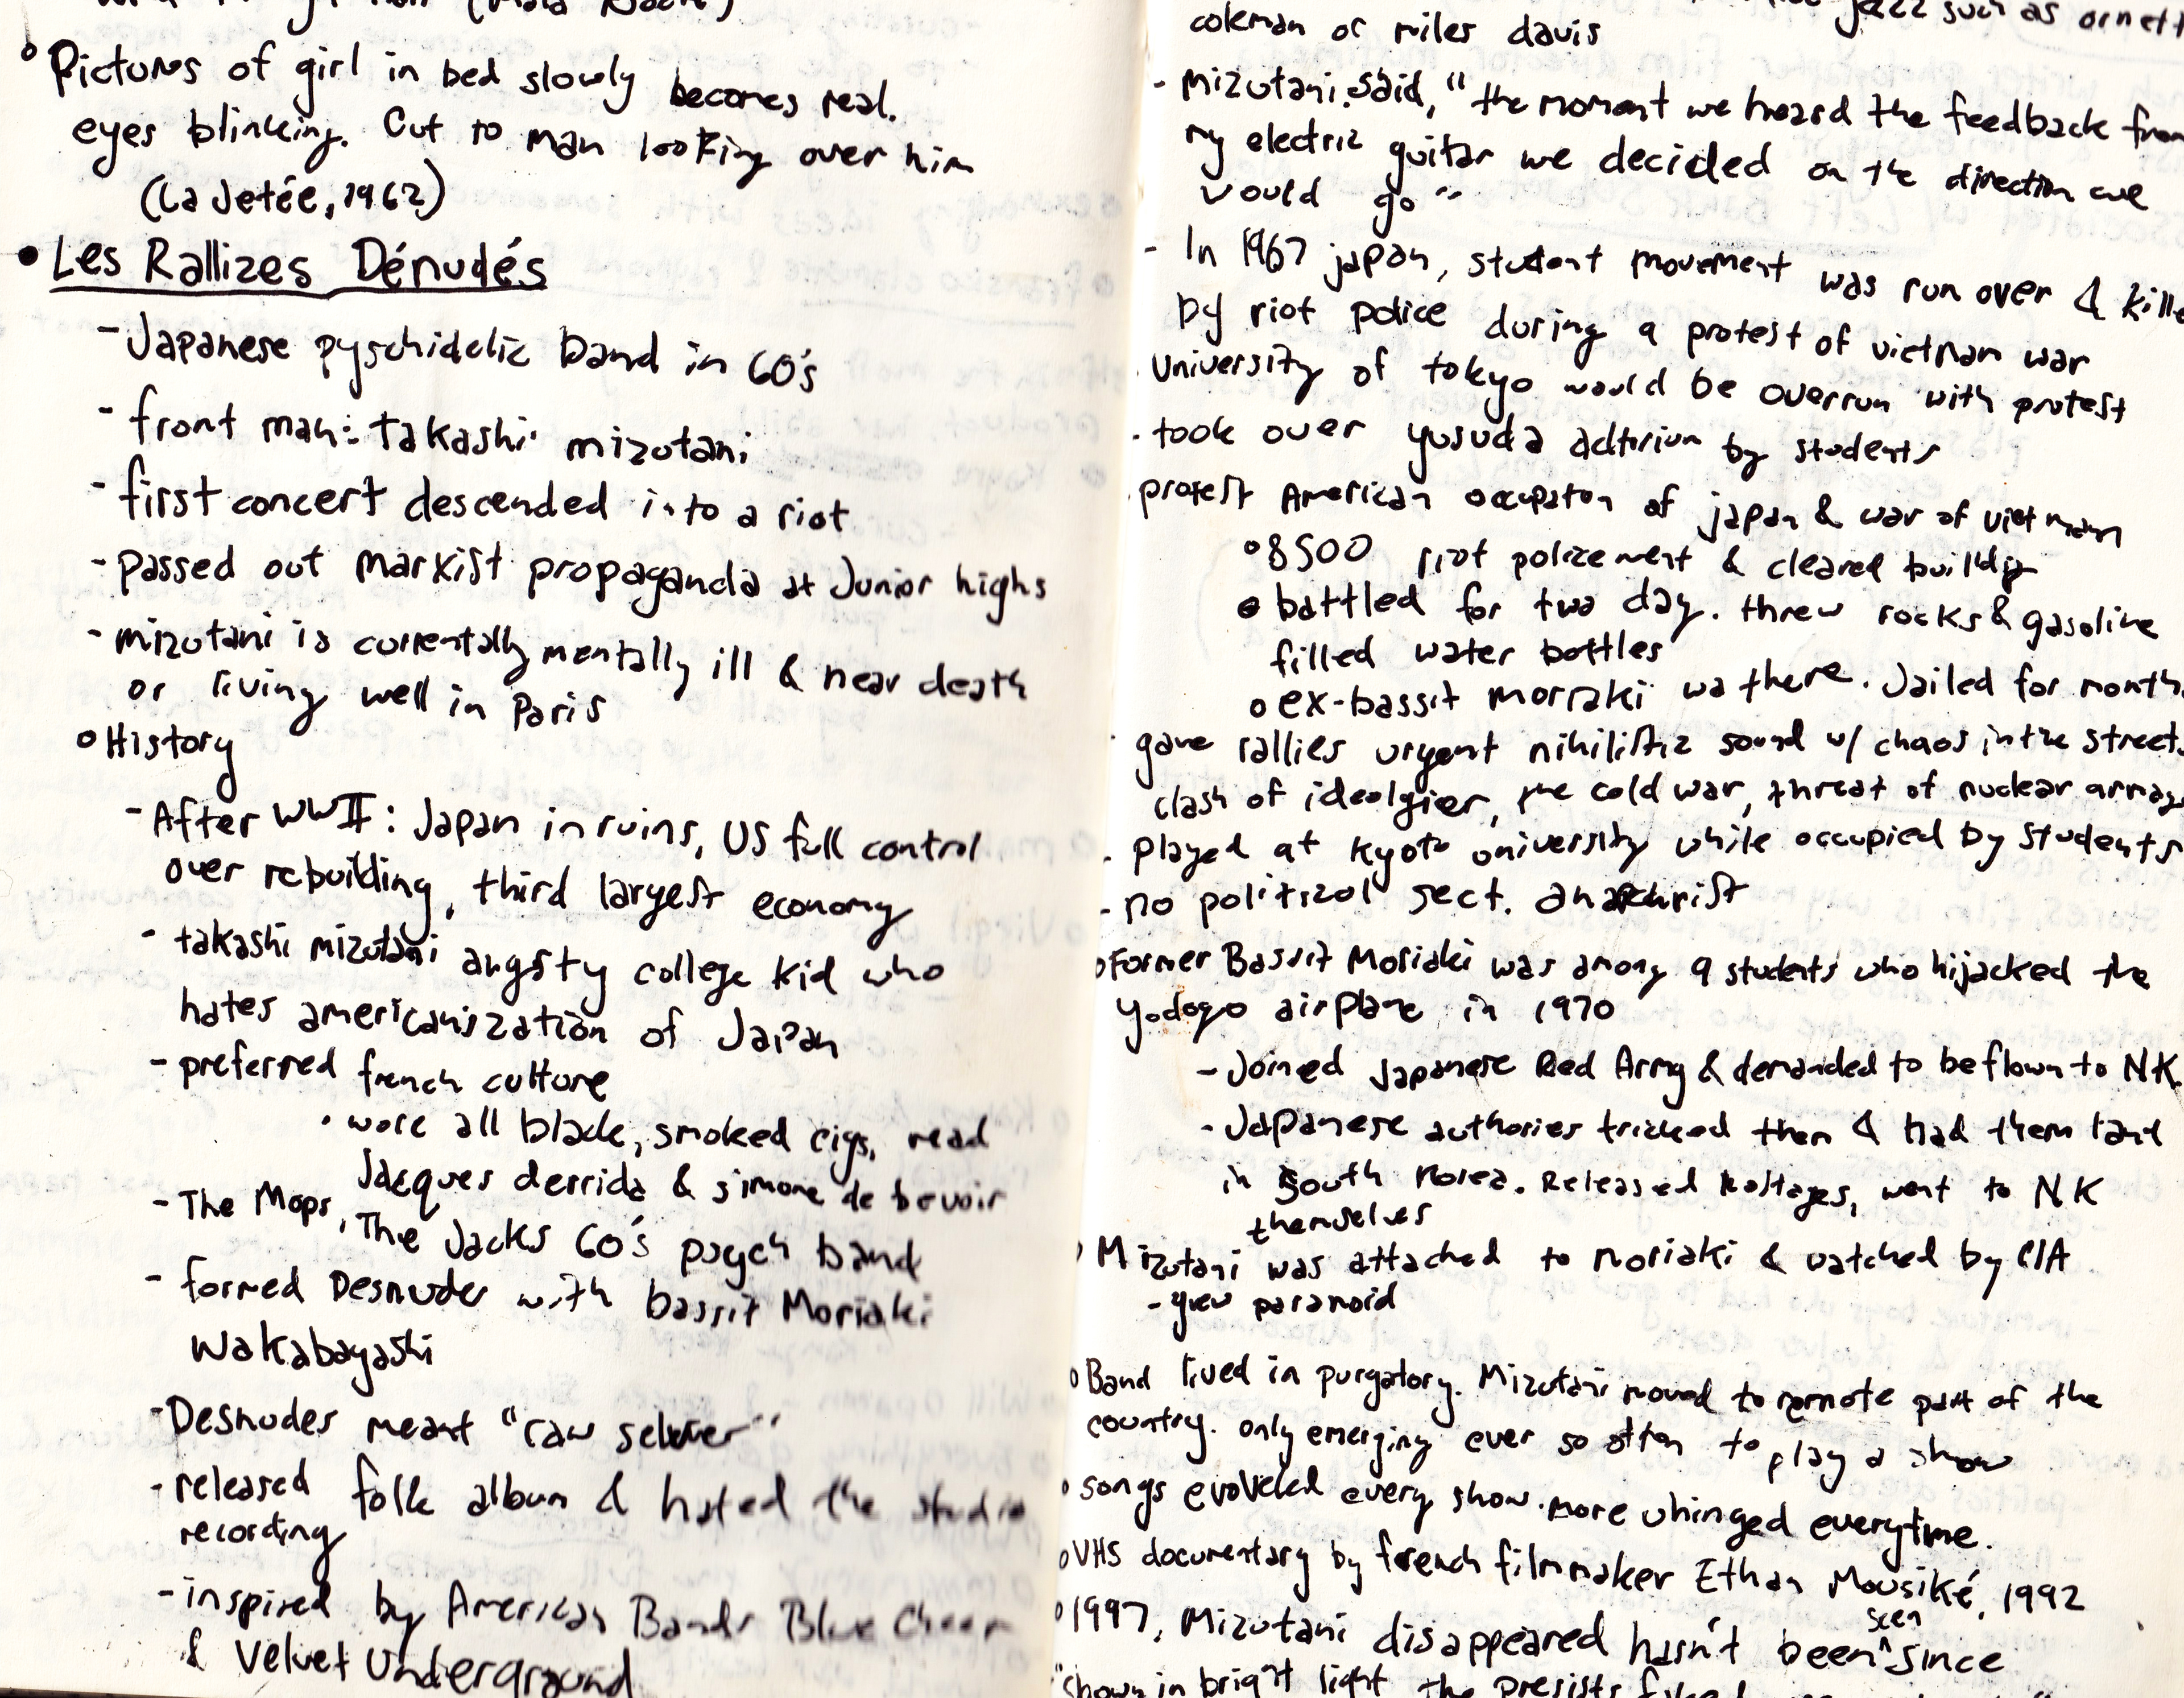 ° Pictures of girl in bed slowly becomes real.
eyes blinking. Cut to man looking over him
(La Jetée, 1962)
• Les Rallizes Dénudés
- Japanese pyschidelic band in 60's
- front man: takashi mizutani
- first concert descended into a riot
- passed out Marxist propaganda at Junior highs
- mizutani is currentally mentally ill & near death
or living well in Paris
° History
- After WWII: Japan in ruins, US full control
over rebuilding, third largest economy
- takashi mizutani angsty college kid who
hates americanization of Japan
- preferred french culture
• wore all black, smoked cigs, read
Jacques derrida & simone de bevoir
- The Mops, The Jacks 60's psych band
- formed Desnudes with bassit Moriaki
Wakabayashi
- Desnudes meant "raw
- released folk album & hated the studio
recording
- inspired by American Bands Blue Cheer
& Velvet Underground
jazz such as ornett
coleman or miles davis
- mizutani said, "the moment we heard the feedback from
my electric guitar we decided on the direction we
would go"
- In 1967 japan, student movement was run over & kille
by riot police during a protest of vietnam war
- University of tokyo would be overrun with protest
- took over yusuda by students
- protest American occupaton of japan & war of vietnam
° 8500 riot & cleared
° battled for two day. threw rocks & gasoline
filled water bottles
° ex-bassit moriaki wa there. Jailed for month
- gave rallies urgent nihilistic sound w/ chaos in the street
clash of the cold war, threat of nuclear
- played at kyoto university while occupied by students
- no political sect.
° Former Bassit Moriaki was among 9 students who hijacked the
Yodogo airplane in 1970
- Joined Japanese Red Army & demanded to be flown to NK.
- Japanese authories tricked them & had them land
in South Korea. Released hostages, went to NK
themselves
° Mizutani was attached to noriaki & watched by CIA
- grew paranoid
° Band lived in purgatory. Mizutani moved to remote part of the
country. only emerging ever so often to play a show
° songs evolveled every show. more uhinged everytime.
° VHS documentary by french filmmaker Ethan Mousiké, 1992
° 1997, Mizutani disappeared hasn't been seen since
"shown in bright light the